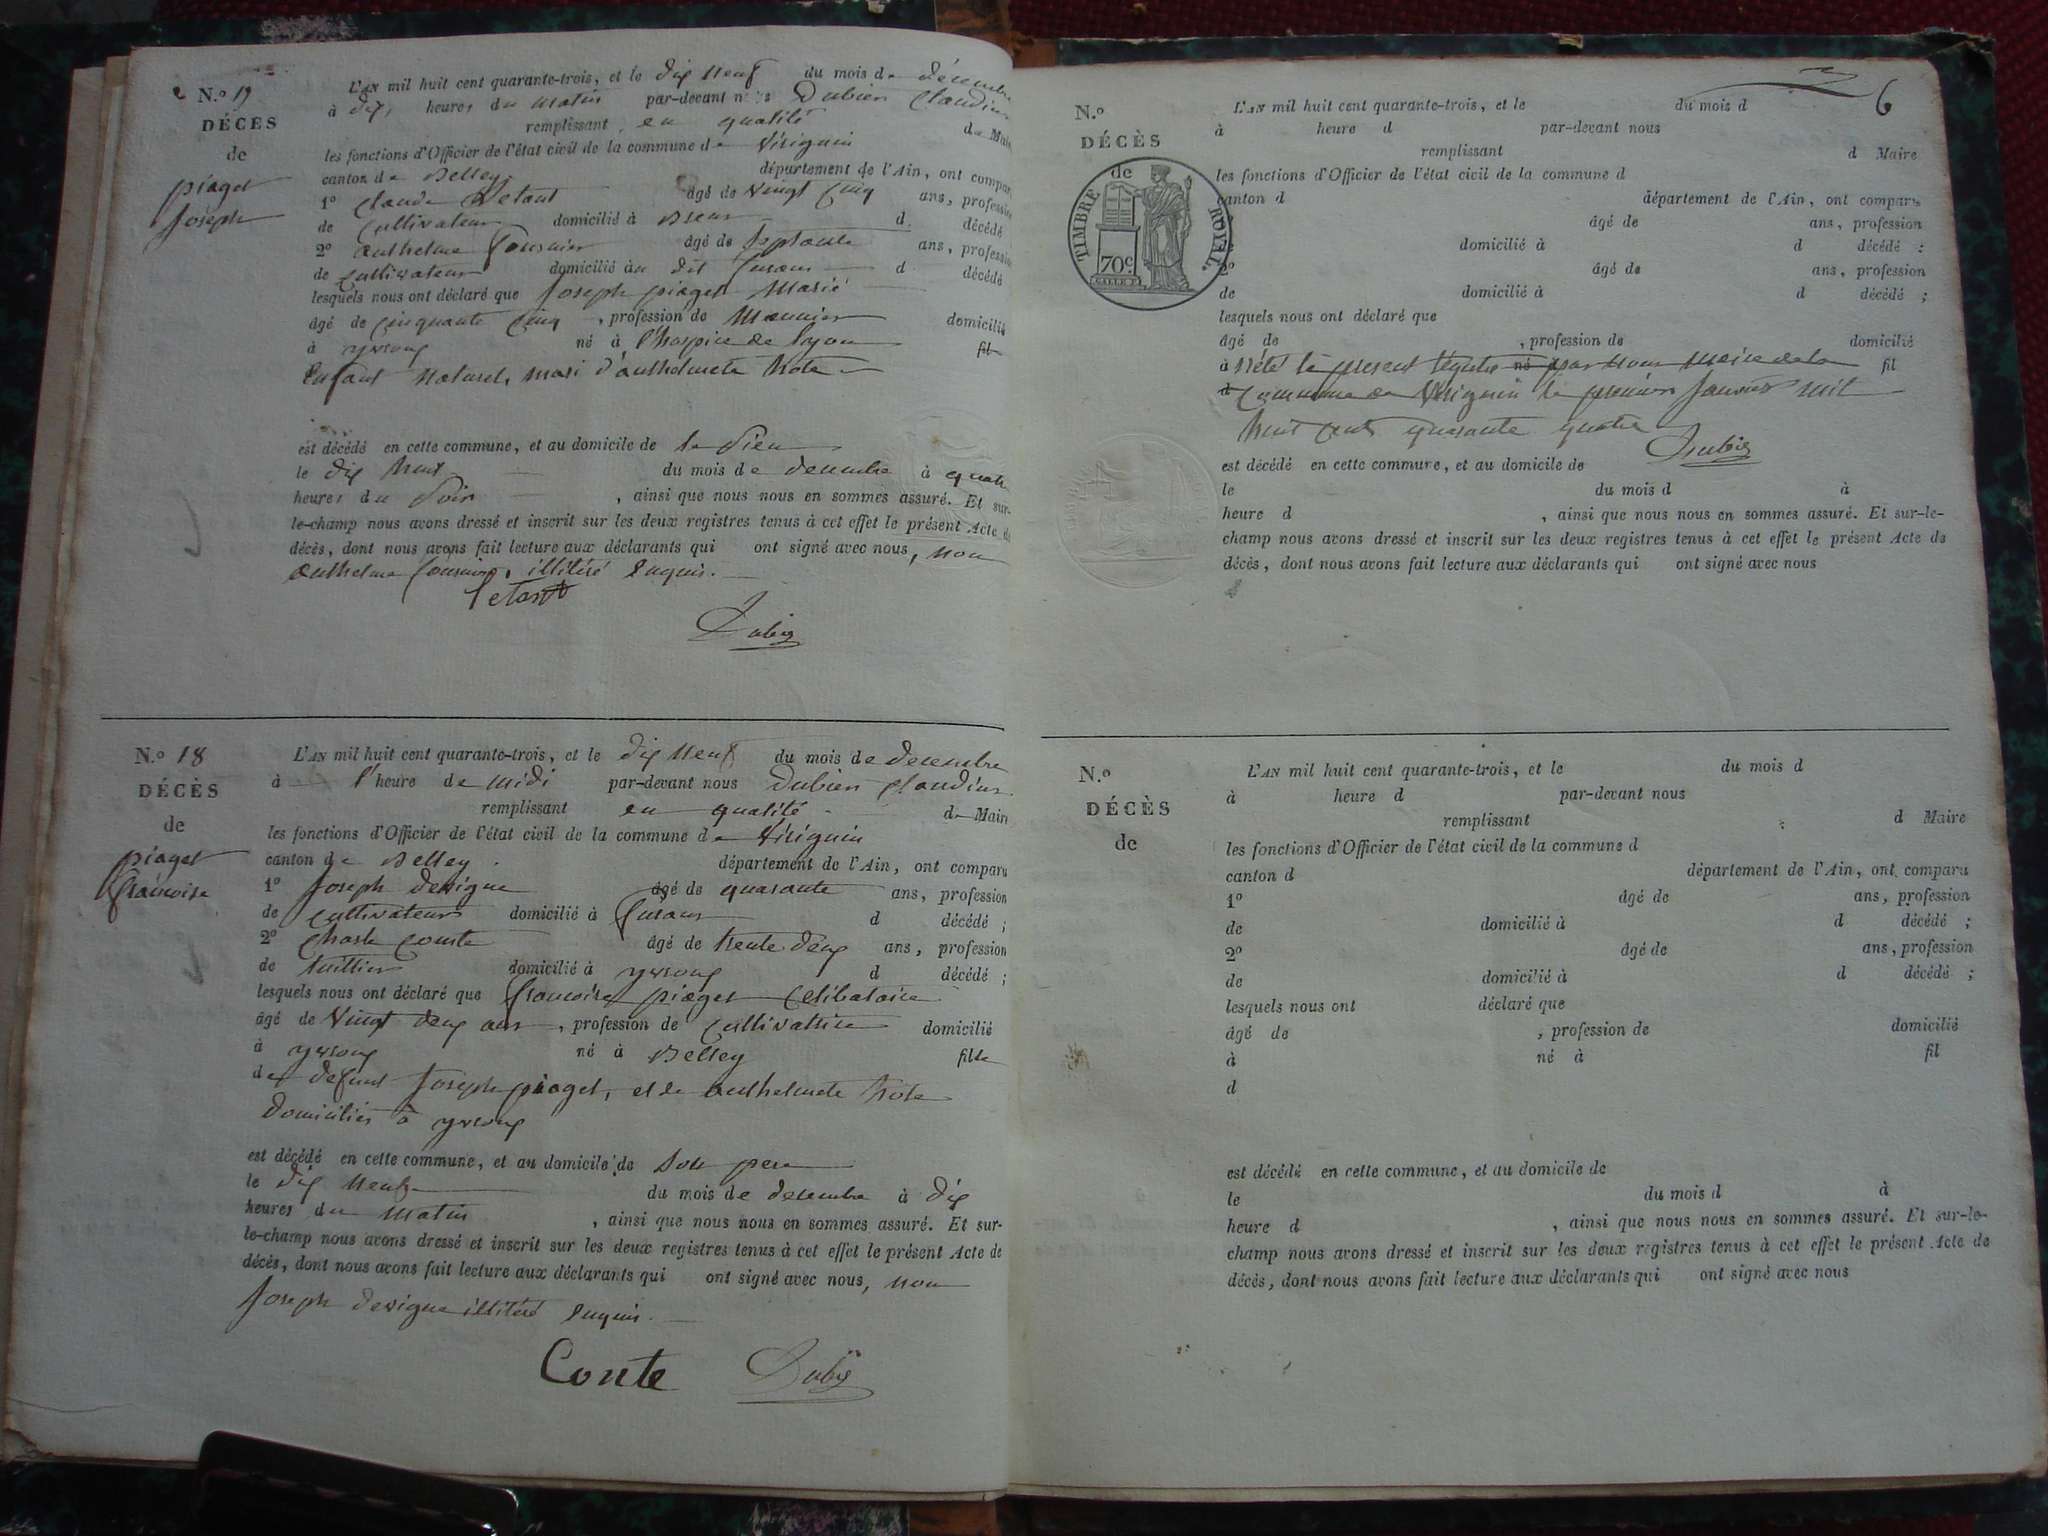 N.º 17
DÉCES
de
piaget
Joseph
L'AN mil huit cent quarante-trois, et le dix neuf du mois de décembre
à dix heures du matin par-devant nous Dubien Claudius
remplissant en qualité de Maire
les fonctions d'Officier de l'état civil de la commune de Virignin
canton de Belley département de l'Ain, ont comparu
1º Claude Letant âgé de vingt cinq ans, profession
de Cultivateur domicilié à Brens d décédé
2º Anthelme âgé de septante ans, profession
de Cultivateur domicilié au dit d décédé
lesquels nous ont déclaré que Joseph piaget Marié
âgé de cinquante cinq, profession de Meunier domicilié
à né à l'hospice de lyon fil
Enfant Naturel, mari d'anthelmete
est décédé en cette commune, et au domicile de le Sien
le dix huit du mois de decembre à quatre
heures du Soir, ainsi que nous nous en sommes assuré. Et sur-
le-champ nous avons dressé et inscrit sur les deux registres tenus à cet effet le présent Acte de
décès, dont nous avons fait lecture aux déclarants qui ont signé avec nous, non
anthelme illitéré Enquis.
Letant
Dubien
N.º 18
DÉCÈS
de
piaget
francoise
L'AN mil huit cent quarante-trois, et le dix neuf du mois de decembre
à l'heure de midi par-devant nous Dubien Claudius
remplissant en qualité de Maire
les fonctions d'Officier de l'état civil de la commune de Virignin
canton de Belley département de l'Ain, ont comparu
1º Joseph derigue âgé de quarante ans, profession
de Cultivateur domicilié à d décédé ;
2º Charle Conte âgé de trente deux ans, profession
de tuillier domicilié à d décédé ;
lesquels nous ont déclaré que francoise piaget Celibataire
âgé de vingt deux ans, profession de Cultivatrice domicilié
à né à Belley fille
de defunt Joseph piaget, et de anthelmete
domiciliés à
est décédé en cette commune, et au domicile de son pere
le dix neuf du mois de decembre à dix
heures du Matin, ainsi que nous nous en sommes assuré. Et sur-
le-champ nous avons dressé et inscrit sur les deux registres tenus à cet effet le présent Acte de
décès, dont nous avons fait lecture aux déclarants qui ont signé avec nous, non
Joseph derigue illitéré Enquis.
Conte Dubien
6
N.º
DÉCÈS
de
TIMBRE ROYAL.
70c.
L'AN mil huit cent quarante-trois, et le du mois d
à heure d par-devant nous
remplissant d Maire
les fonctions d'Officier de l'état civil de la commune d
canton d département de l'Ain, ont comparu
âgé de ans, profession
domicilié à d décédé ;
2º âgé de ans, profession
de domicilié à d décédé ;
lesquels nous ont déclaré que
âgé de , profession de domicilié
à né fil
Arrêté le present registre par nous Maire de la
d
Commune de Virignin le premier Janvier mil
huit cent quarante quatre
Dubien
est décédé en cette commune, et au domicile de
le du mois d à
heure d , ainsi que nous nous en sommes assuré. Et sur-le-
champ nous avons dressé et inscrit sur les deux registres tenus à cet effet le présent Acte de
décès, dont nous avons fait lecture aux déclarants qui ont signé avec nous
N.º
DÉCÈS
de
L'AN mil huit cent quarante-trois, et le du mois d
à heure d par-devant nous
remplissant d Maire
les fonctions d'Officier de l'état civil de la commune d
canton d département de l'Ain, ont comparu
1º âgé de ans, profession
de domicilié à d décédé ;
2º âgé de ans, profession
de domicilié à d décédé ;
lesquels nous ont déclaré que
âgé de , profession de domicilié
à né à fil
d
est décédé en cette commune, et au domicile de
le du mois d à
heure d , ainsi que nous nous en sommes assuré. Et sur-le-
champ nous avons dressé et inscrit sur les deux registres tenus à cet effet le présent Acte de
décès, dont nous avons fait lecture aux déclarants qui ont signé avec nous